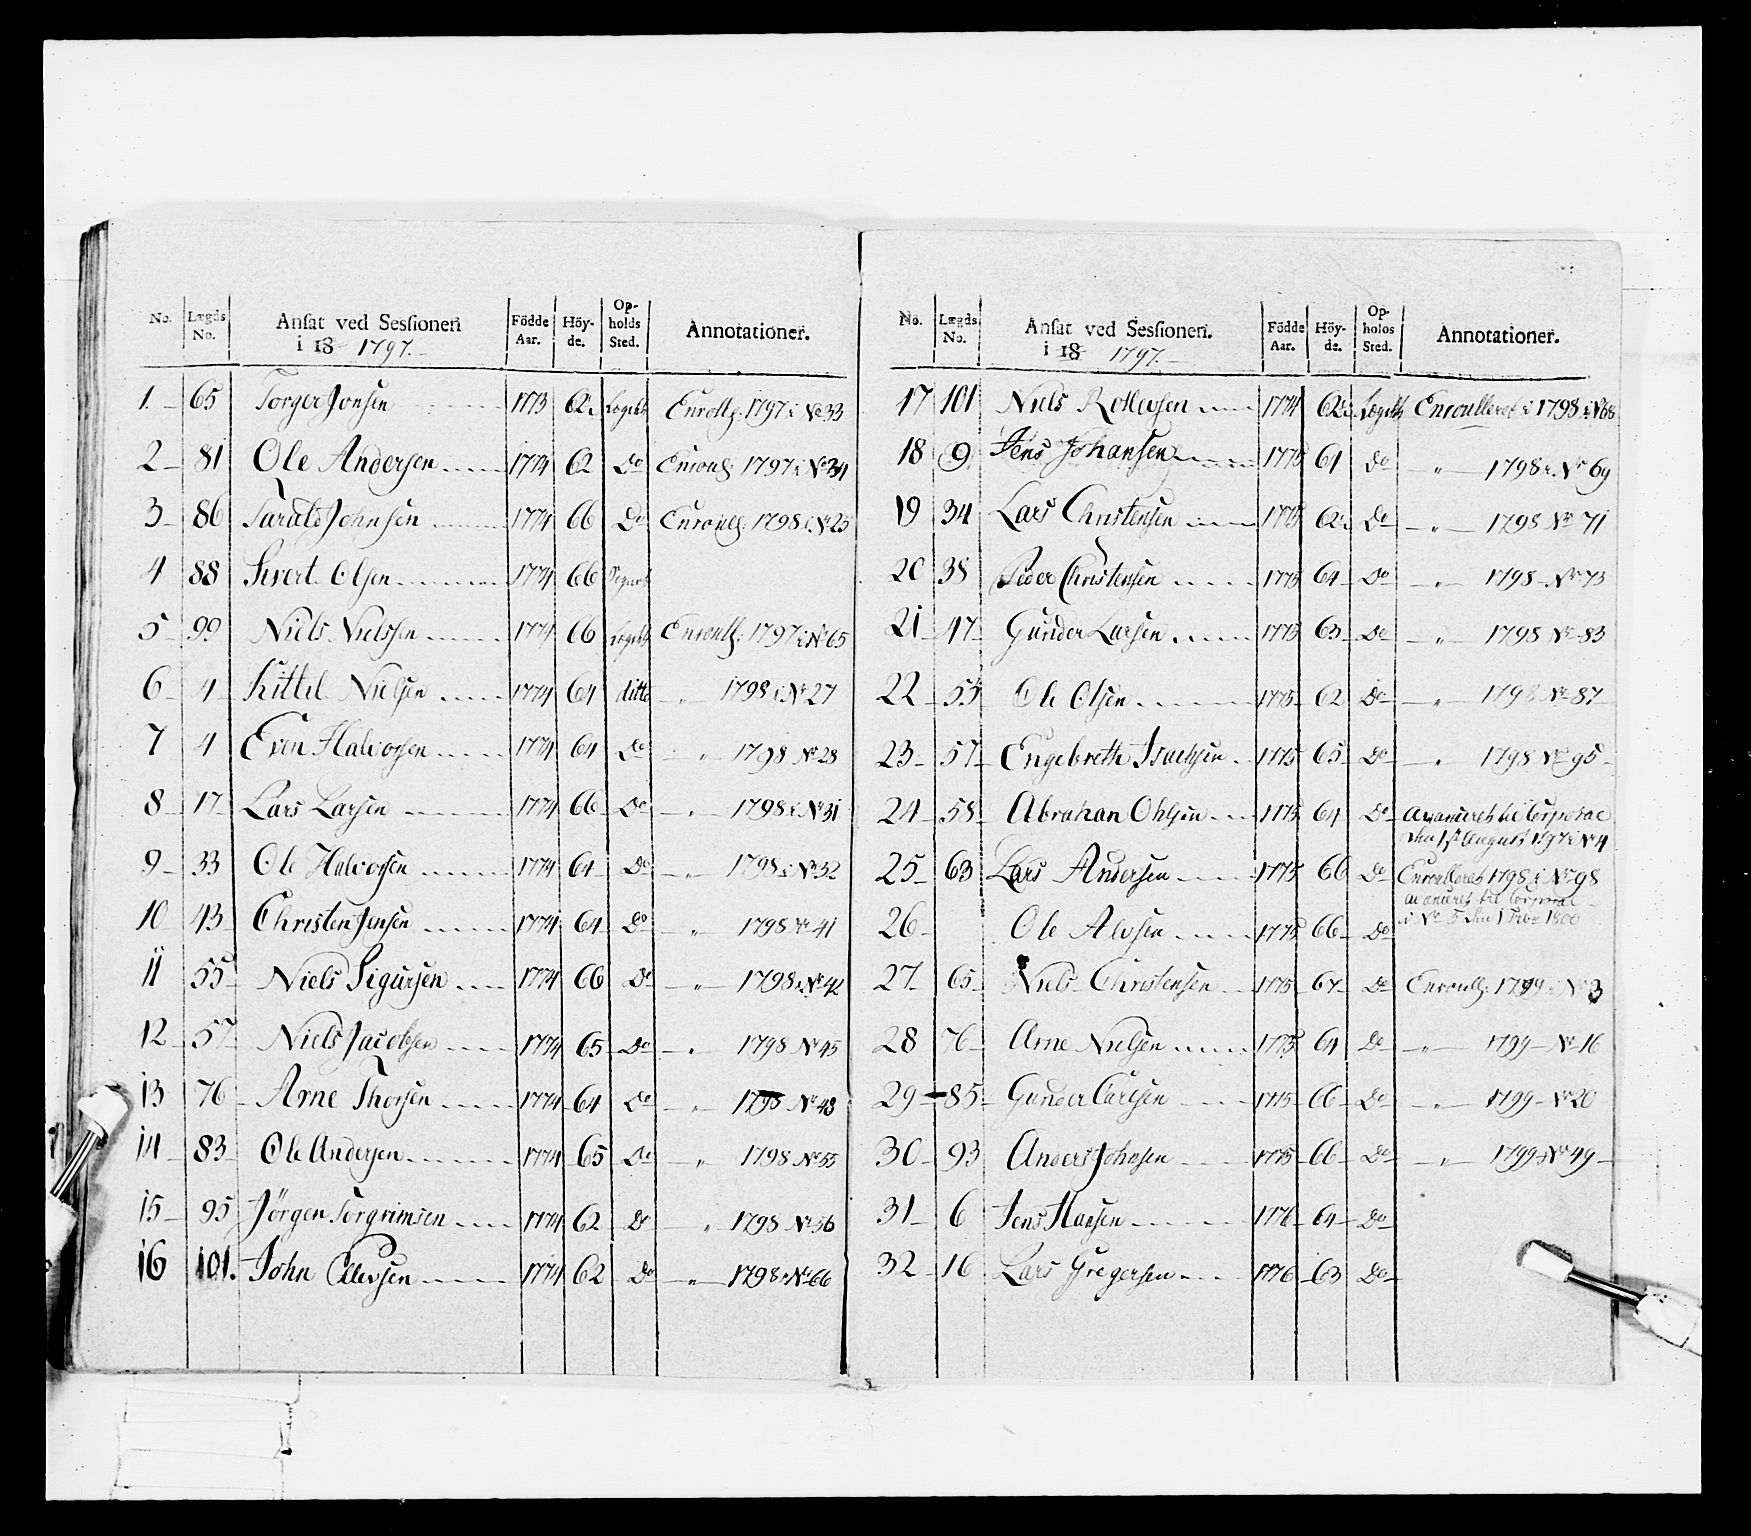 No. Lægds No. Ansat ved Sessionen i 18 1797. Födde Aar. Höyde. Opholds Sted. Annotationer.
1. 65 Torger Jonsen 1773 62½ Lægdet Enroulg. 1797 i No 33
2 81 Ole Andersen 1774 62 Do Enroulg. 1797 i No 34
3 86 Johnsen 1774 66 Do Enroulg. 1798 i No 25
4 88 Sivert Olsen 1774 66
5 99 Niels Nielsen 1774 66 Lægdet Enroulg. 1797 i No 65
6 4 Kittel Nielsen 1774 64 ditto — " — 1798 i No 27
7 4 Even Halvorsen 1774 64 Do — " — 1798 No 28
8 17 Lars Larsen 1774 66 Do — " — 1798 i No 31
9 33 Ole Halvorsen 1774 64 Do — " — 1798 i No 32
10 43 Christen Jensen 1774 64 Do — " — 1798 No 41
11 55 Niels Sigursen 1774 66 Do — " — 1798 i No 42
12 57 Niels Jacobsen 1774 65 Do — " — 1798 No 45
13 76 Arne Thorsen 1774 64 Do — " — 1798 No 48
14 83 Ole Andersen 1774 65 Do — " — 1798 No 55
15 95 Jörgen Torgrimsen 1774 62 Do — " — 1798 No 56
16 101. John Ellevsen 1774 62 Do — " — 1798 No 66
No. Lægds No. Ansat ved Sessionen. i 18 1797. Födde Aar. Höyde. Opholds Sted. Annotationer.
17 101 Niels Rollevsen 1774 62½ Lægdet Enroulleret i 1798 i No 68
18 9 Jens Johansen 1775 61 Do — " — 1798 i No 69
19 34 Lars Christensen 1775 62½ Do — " — 1798 No 71
20 38 Peder Christensen 1775 64 Do — " — 1798 No 73
21 47 Gunder Larsen 1775 63 Do — " — 1798 No 83
22 55 Ole Olsen 1775 62 Do — " — 1798 No 87
23 57 Engebreth Isachsen 1775 65 Do — " — 1798 No 95
24 58 Abraham Ohlsen 1775 64 Do avanceret til Corporal
den 1ste August 1797 i No 4
25 63 Lars Andersen 1775 66 Do Enroulleret 1798 i No 98
avanceret til Corporal
i No 5 den 1 Febr 1800
26 Ole Alvsen 1775 66 Do
27 65 Niels Christensen 1775 67 Do Enroulg. 1799 i No 3
28 76 Arne Nielsen 1775 64 Do — " — 1799 No 16
29 85 Gunder Carlsen 1775 66 Do — " — 1799 No 20
30 93 Anders Johnsen 1775 66 Do — " — 1799 i No 49
31 6 Jens Hansen 1776 64 Do
32 16 Lars Gregersen 1776 63 Do